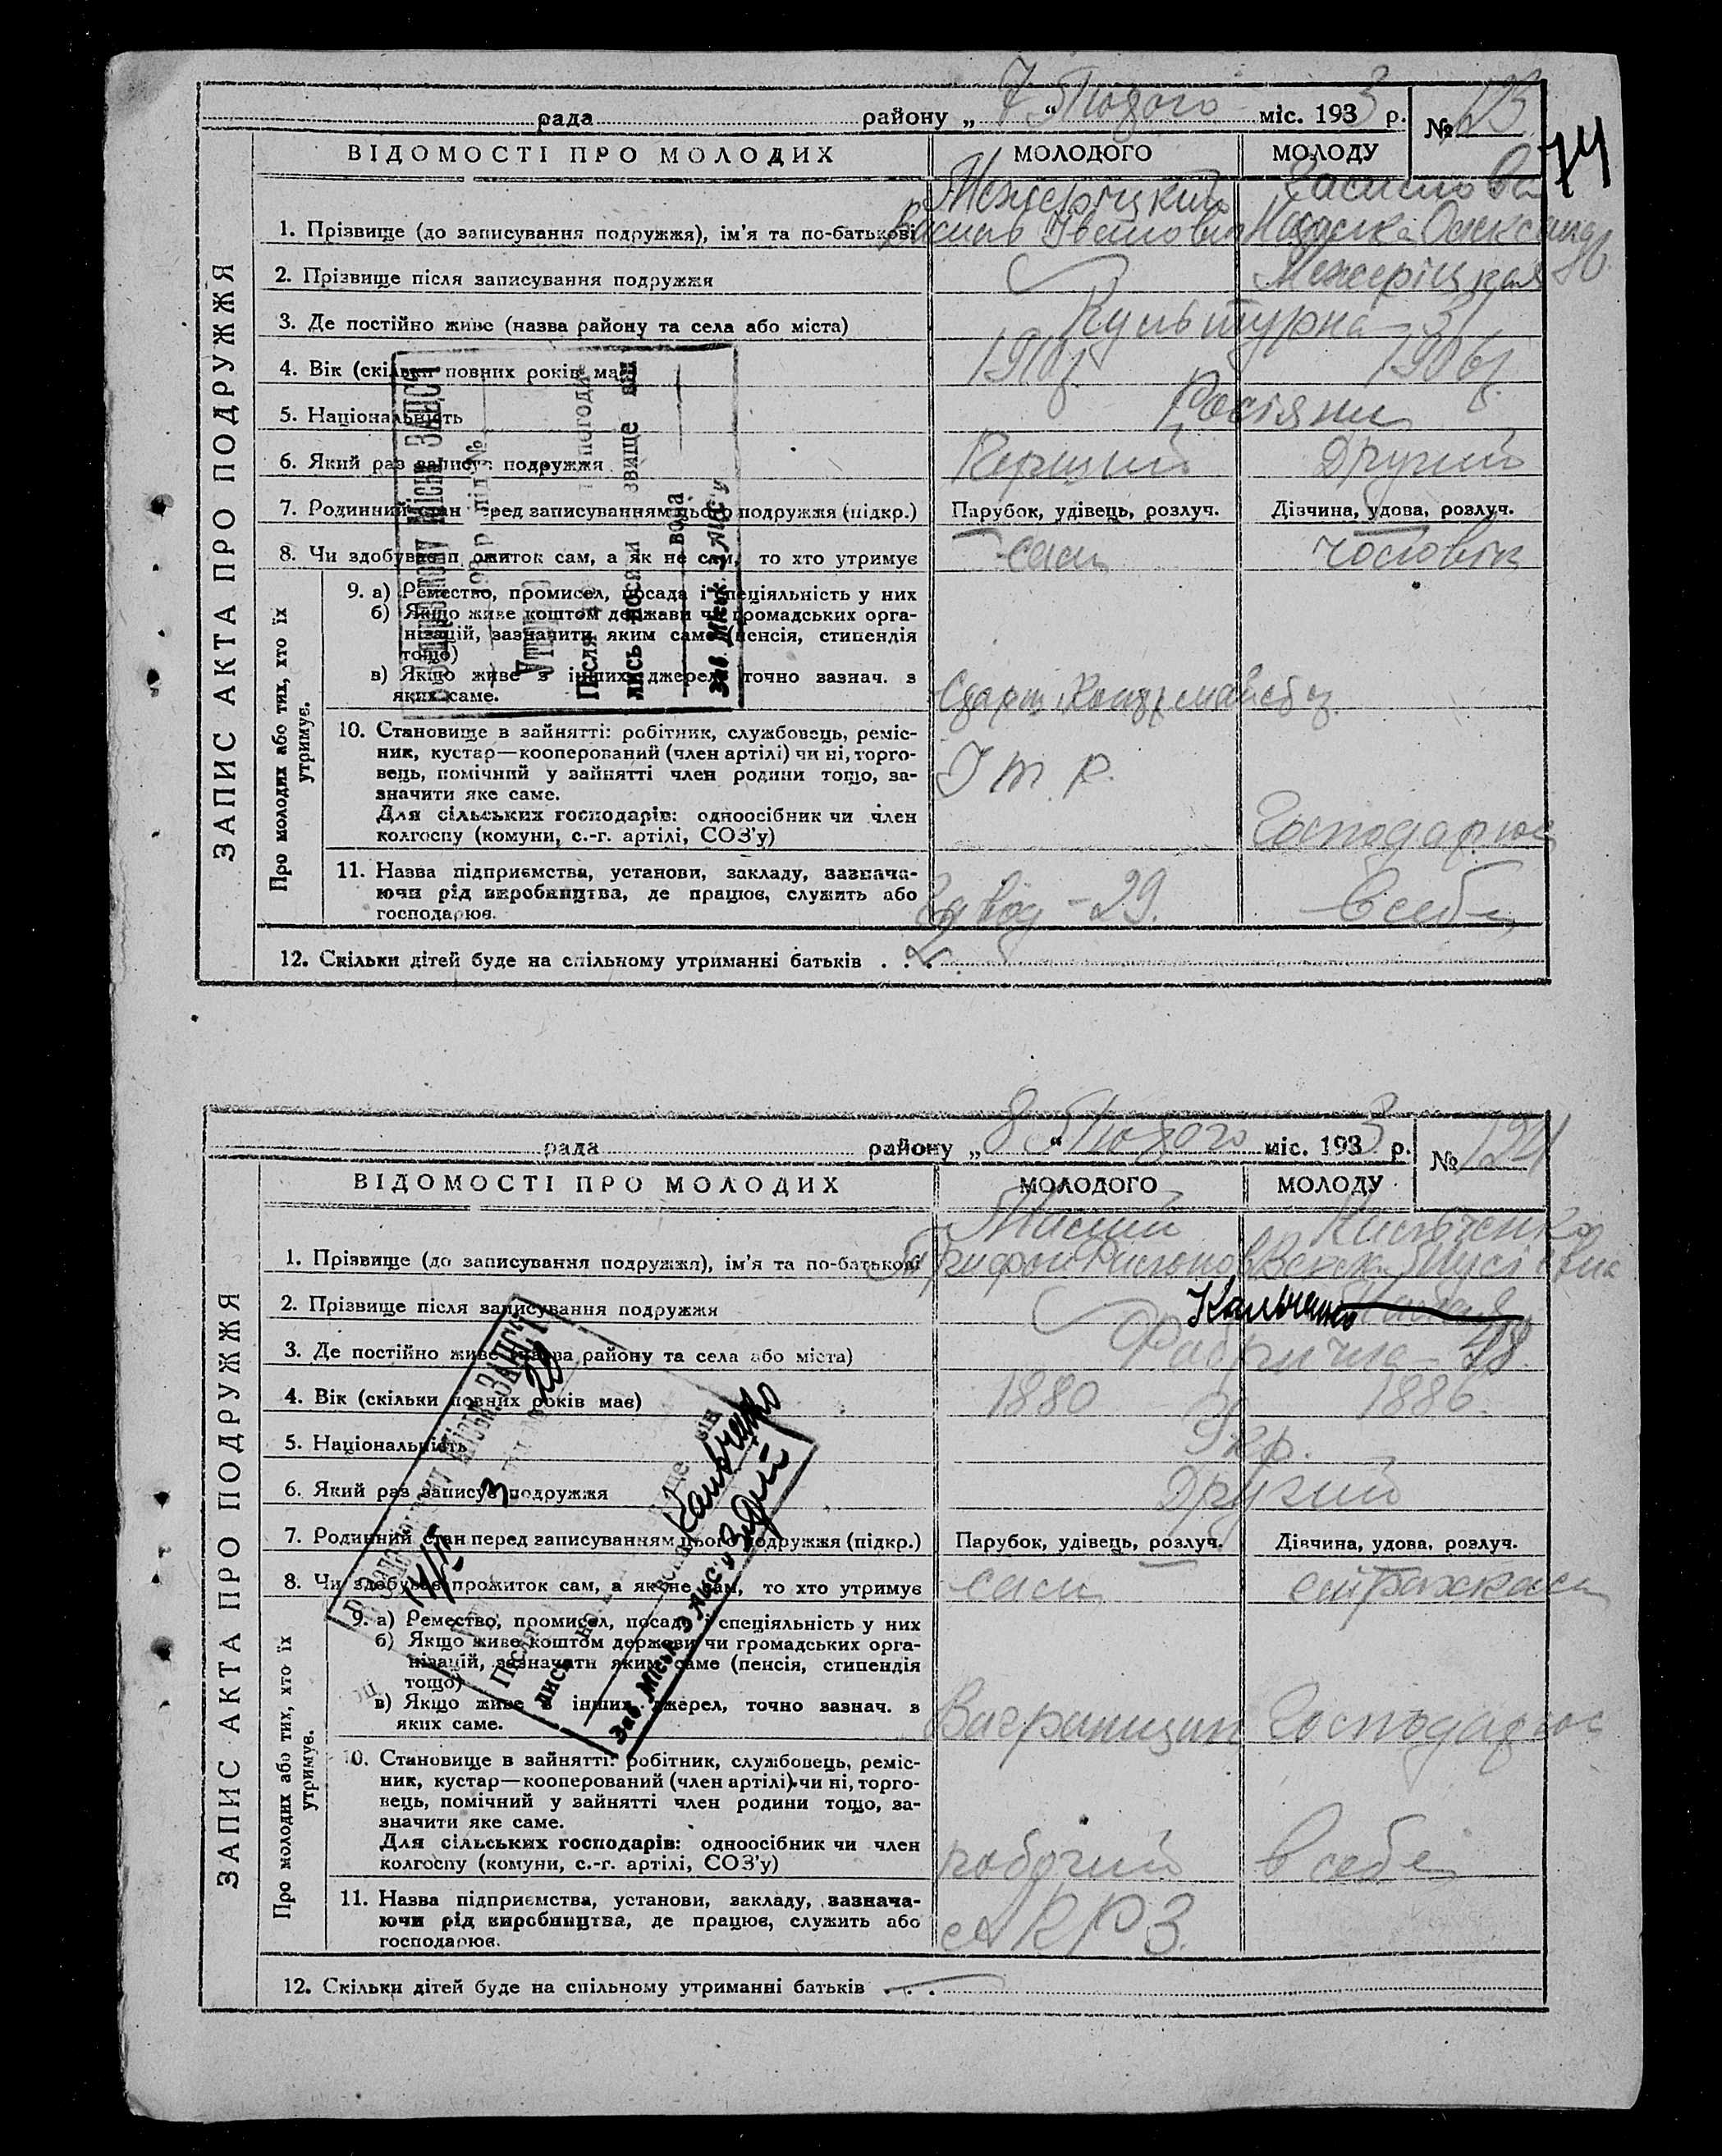 рада району „ 7 " Лютого міс. 1933 р. № 123
74
ВІДОМОСТІ ПРО МОЛОДИХ МОЛОДОГО МОЛОДУ
ЗАПИС АКТА ПРО ПОДРУЖЖЯ
Межеріцкий
1. Прізвище (до записування подружжя), ім'я та по-батькові Іванович Олександр.
2. Прізвище після записування подружжя Межеріцкая
3. Де постійно живе (назва району та села або міста) Культурна - 31
4. Вік (скільки повних років має) 1910 1906
5. Національність Росіяни
6. Який раз записує подружжя Перший Другий
7. Родинний стан перед записуванням цього подружжя (підкр.) Парубок, удівець, розлуч. Дівчина, удова, розлуч.
8. Чи здобуває прожиток сам, а як не сам, то хто утримує сам чоловік
Про молодих або тих, хто їх утримує.
9. а) Ремество, промисел, посада і спеціяльність у них
б) Якщо живе коштом держави чи громадських орга-
нізацій, зазначити яким саме (пенсія, стипендія
тощо)
в) Якщо живе з інших джерел, точно зазнач. з
яких саме.
10. Становище в зайнятті: робітник, службовець, реміс-
ник, кустар—кооперований (член артілі) чи ні, торго-
вець, помічний у зайнятті член родини тощо, за- І т. р.
значити яке саме.
Для сільських господарів: одноосібник чи член
колгоспу (комуни, с.-г. артілі, СОЗ'у) Господарює
11. Назва підприємства, установи, закладу, зазнача-
ючи рід виробництва, де працює, служить або Завод - 29. в себе
господарює.
12. Скільки дітей буде на спільному утриманні батьків . . . 2
рада району „ 8 " Лютого міс. 1933 р. № 124
ВІДОМОСТІ ПРО МОЛОДИХ МОЛОДОГО МОЛОДУ
ЗАПИС АКТА ПРО ПОДРУЖЖЯ
1. Прізвище (до записування подружжя), ім'я та по-батькові Трифон
2. Прізвище після записування подружжя Кальченко
3. Де постійно живе (назва району та села або міста) Фабрична - 48.
4. Вік (скільки повних років має) 1880 1886.
5. Національність Укр.
6. Який раз записує подружжя Другий
7. Родинний стан перед записуванням цього подружжя (підкр.) Парубок, удівець, розлуч. Дівчина, удова, розлуч.
8. Чи здобуває прожиток сам, а як не сам, то хто утримує сам
Про молодих або тих, хто їх утримує.
9. а) Ремество, промисел, посада і спеціяльність у них
б) Якщо живе коштом держави чи громадських орга-
нізацій, зазначити яким саме (пенсія, стипендія
тощо)
в) Якщо живе з інших джерел, точно зазнач. з
яких саме. Вагранщик Господарює
10. Становище в зайнятті: робітник, службовець, реміс-
ник, кустар—кооперований (член артілі) чи ні, торго-
вець, помічний у зайнятті член родини тощо, за-
значити яке саме.
Для сільських господарів: одноосібник чи член
колгоспу (комуни, с.-г. артілі, СОЗ'у) робочий в себе
11. Назва підприємства, установи, закладу, зазнача-
ючи рід виробництва, де працює, служить або
господарює.
12. Скільки дітей буде на спільному утриманні батьків . . .